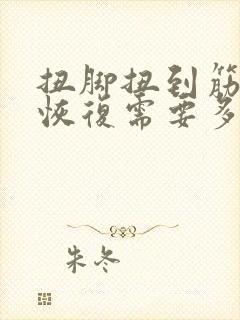 扭脚扭到筋
恢復需要多
朱冬